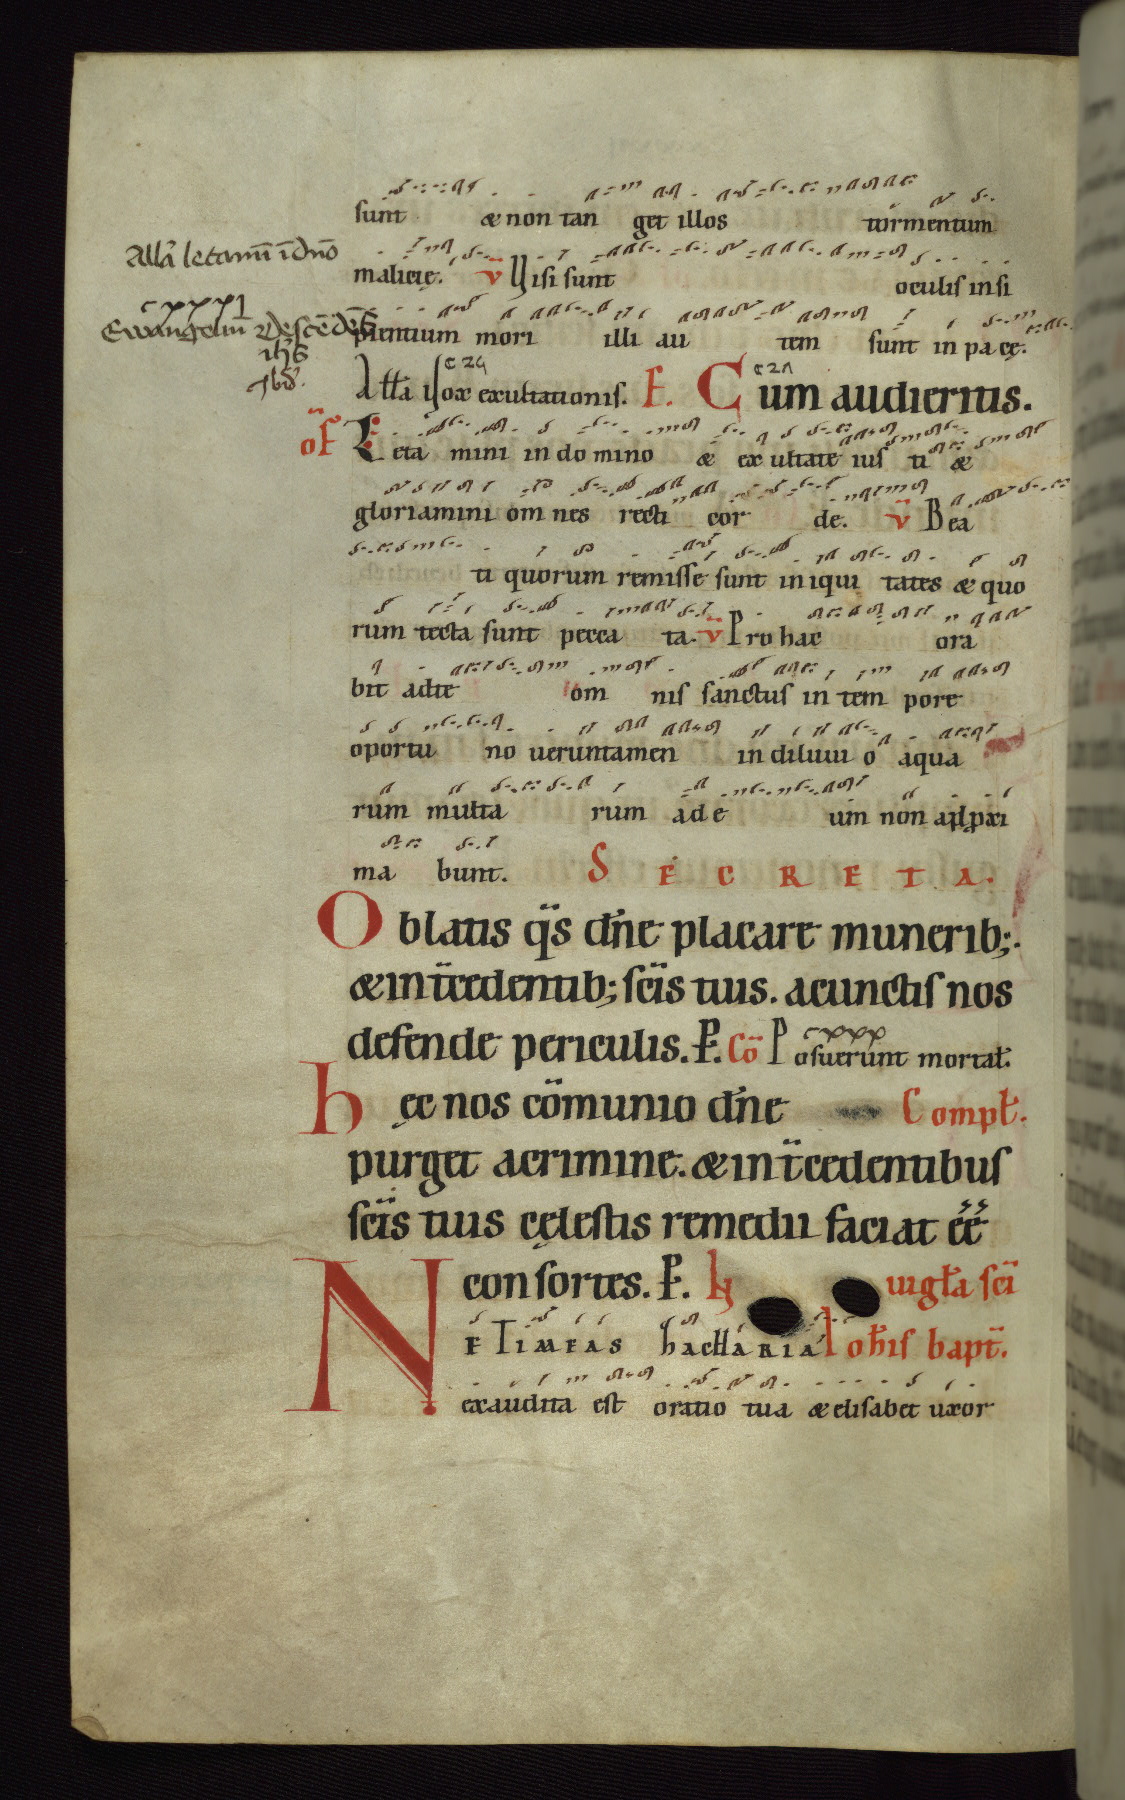 sunt & non tan get illos tormentum
Alla͞ letami͞ i͞ dn͞o
malicie. v̈ Uisi sunt oculis insi
cxxxi
Ewangeliu͞ Desce͞de͞s
ih͞s
pientium mori illi au tem sunt in pa cę.
c 24 c 21
All͞a Uox exultationis. F. Cum audieritis.
of Leta mini in do mino & ex ultate ius ti &
gloriamini om nes recti cor de. v̈ Bea
ti quorum remisse sunt iniqui tates & quo
rum tecta sunt pecca ta. v̈ Pro hac ora
bit adte om nis sanctus in tem pore
oportu no ueruntamen in diluui o aqua
rum multa rum ad e um non aꝓpxi
ma bunt. SECRETA.
Oblatis q̈s dn͞e placare munerib;.
& int̄cedentib; sc̄is tuis. acunctis nos
defende periculis. P. Cō Posuerunt mortal̄.
cxxx
Hęc nos cōmunio dn͞e Compl̄.
purget acrimine. & int̄cedentibus
sc̄is tuis cęlestis remedii faciat ēē
consortes. P. uigl̄a sc̄i
NE TIMEAS ZACHARIA Ioh̄is bapt̄.
exaudita est oratio tua & elisabet uxor